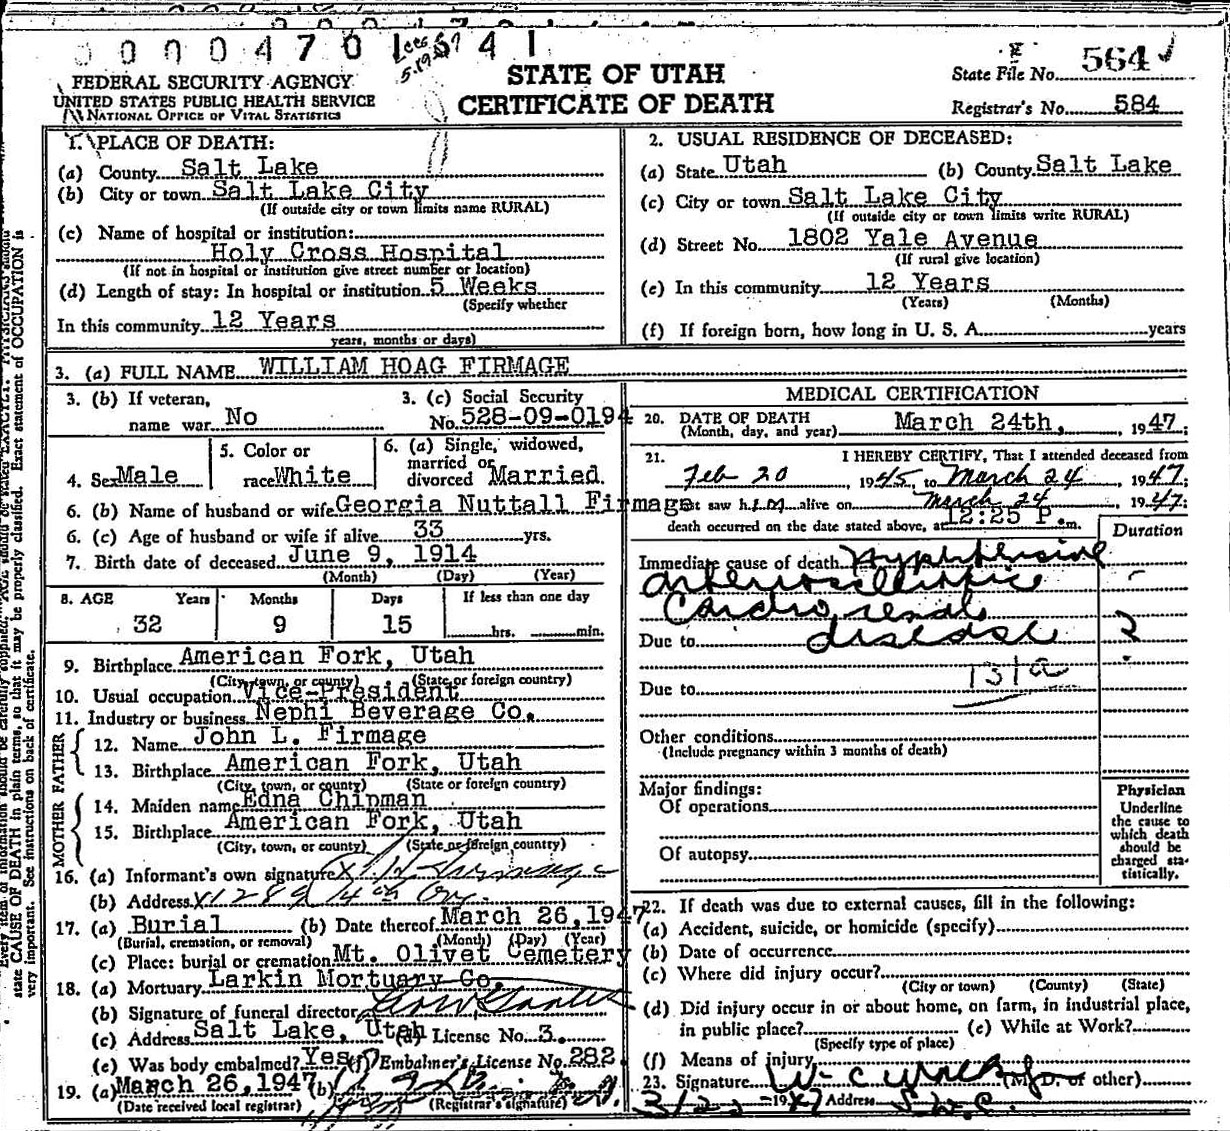 0 0 0 0 4 7 0 1 4 1
FEDERAL SECURITY AGENCY
UNITED STATES PUBLIC HEALTH SERVICE
NATIONAL OFFICE OF VITAL STATISTICS
STATE OF UTAH
CERTIFICATE OF DEATH
State File No. 564
Registrar's No. 584
1. PLACE OF DEATH:
(a) County Salt Lake
(b) City or town Salt Lake City
(If outside city or town limits name RURAL)
(c) Name of hospital or institution:
Holy Cross Hospital
(If not in hospital or institution give street number or location)
(d) Length of stay: In hospital or institution 5 Weeks
(Specify whether
In this community 12 Years
years, months or days)
2. USUAL RESIDENCE OF DECEASED:
(a) State Utah (b) County Salt Lake
(c) City or town Salt Lake City
(If outside city or town limits write RURAL)
(d) Street No. 1802 Yale Avenue
(If rural give location)
(e) In this community 12 Years
(Years) (Months)
(f) If foreign born, how long in U. S. A. years
3. (a) FULL NAME WILLIAM HOAG FIRMAGE
3. (b) If veteran,
name war No
3. (c) Social Security
No. 528-09-0194
4. Sex Male
5. Color or
race White
6. (a) Single, widowed,
married or
divorced Married
6. (b) Name of husband or wife Georgia Nuttall Firmage
6. (c) Age of husband or wife if alive 33 yrs.
7. Birth date of deceased June 9, 1914
(Month) (Day) (Year)
8. AGE Years Months Days If less than one day
32 9 15 hrs. min.
9. Birthplace American Fork, Utah
(City, town, or county) (State or foreign country)
10. Usual occupation Vice-President
11. Industry or business Nephi Beverage Co.
FATHER
12. Name John L. Firmage
13. Birthplace American Fork, Utah
(City, town, or county) (State or foreign country)
MOTHER
14. Maiden name Edna Chipman
15. Birthplace American Fork, Utah
(City, town, or county) (State or foreign country)
16. (a) Informant's own signature
(b) Address
17. (a) Burial (b) Date thereof March 26, 1947
(Burial, cremation, or removal) (Month) (Day) (Year)
(c) Place: burial or cremation Mt. Olivet Cemetery
18. (a) Mortuary Larkin Mortuary Co.
(b) Signature of funeral director
(c) Address Salt Lake, Utah (d) License No. 3.
(e) Was body embalmed? Yes (f) Embalmer's License No. 282
19. (a) March 26, 1947 (b)
(Date received local registrar) (Registrar's signature)
MEDICAL CERTIFICATION
20. DATE OF DEATH
(Month, day, and year) March 24th, , 1947;
21. I HEREBY CERTIFY, That I attended deceased from
Feb 20, 1945, to March 24, 1947;
last saw him alive on March 24, 1947;
death occurred on the date stated above, at 12:25 P. m.
Duration
Immediate cause of death Hypertensive
arteriosclerotic
Cardio renal
Due to disease ?
131a
Due to
Other conditions
(Include pregnancy within 3 months of death)
Major findings:
Of operations
Of autopsy
Physician
Underline
the cause to
which death
should be
charged sta-
tistically.
22. If death was due to external causes, fill in the following:
(a) Accident, suicide, or homicide (specify)
(b) Date of occurrence
(c) Where did injury occur?
(City or town) (County) (State)
(d) Did injury occur in or about home, on farm, in industrial place,
in public place? (e) While at Work?
(Specify type of place)
(f) Means of injury
23. Signature (M. D. or other)
1947 Address S.L.C.
state CAUSE OF DEATH in plain terms, so that it may be properly classified. Exact statement of OCCUPATION is
very important. See instructions on back of certificate.